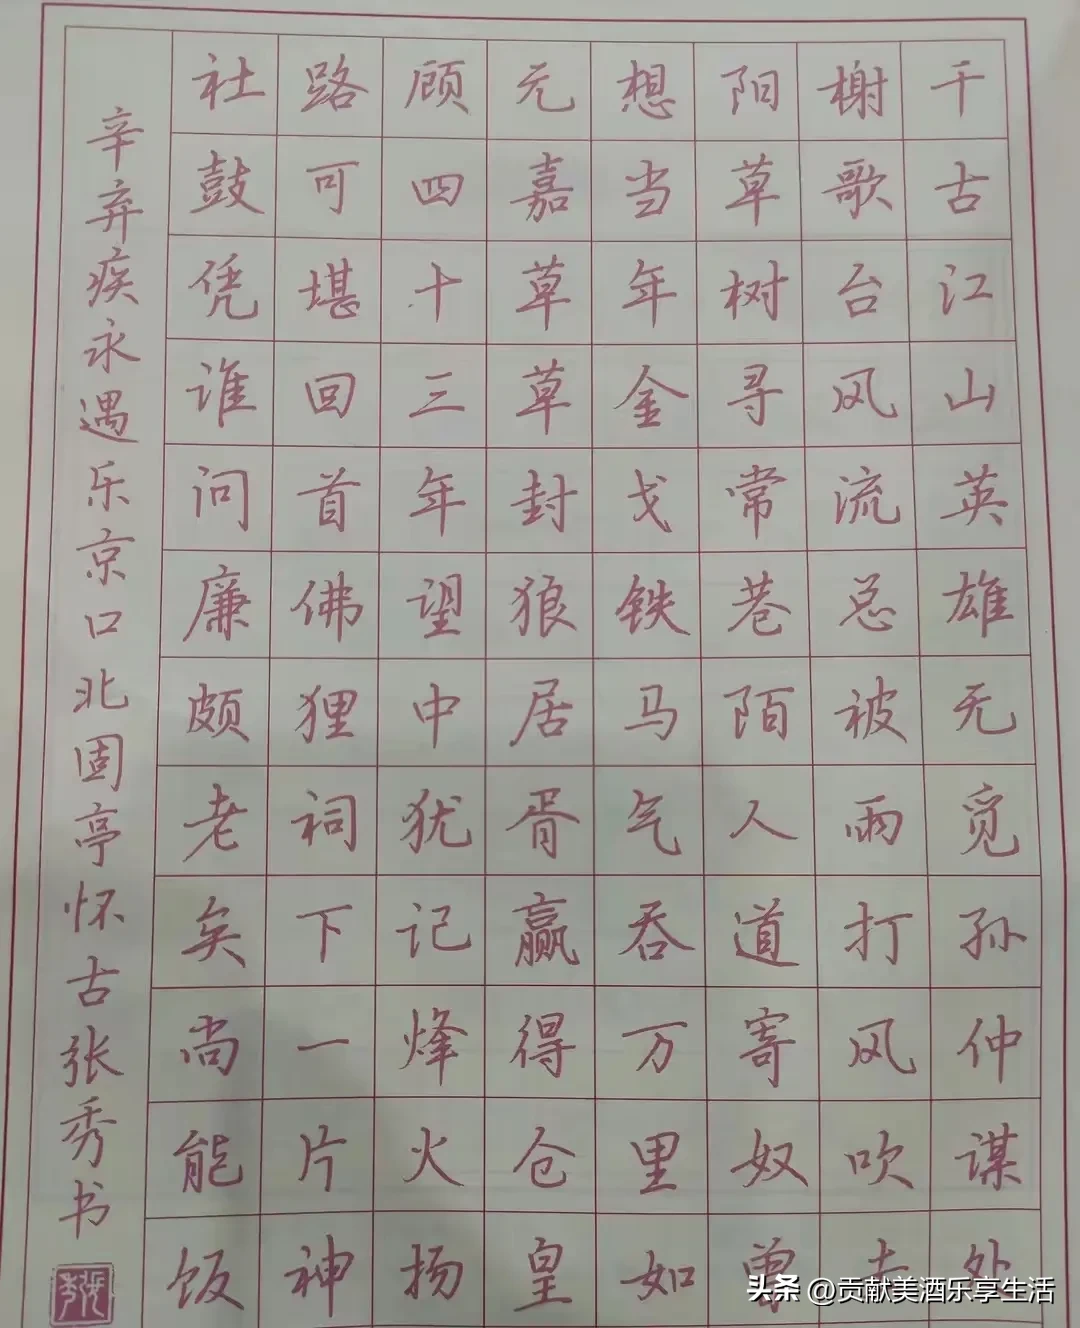 千古江山英雄无觅孙仲谋处
榭歌台风流总被雨打风吹去
阳草树寻常巷陌人道寄奴曾
想当年金戈铁马气吞万里如
元嘉草草封狼居胥赢得仓皇
顾四十三年望中犹记烽火扬
路可堪回首佛狸祠下一片神
社鼓凭谁问廉颇老矣尚能饭
辛弃疾永遇乐京口北固亭怀古张秀书
头条 @贡献美酒乐享生活